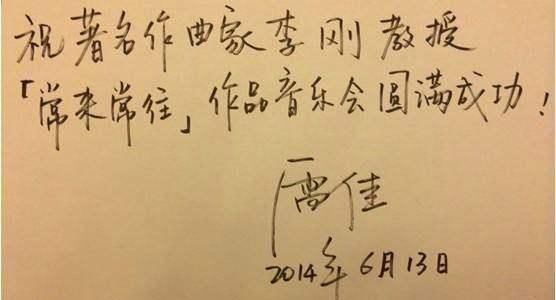 祝著名作曲家李刚教授
「常来常往」作品音乐会圆满成功！
雷佳
2014年6月13日